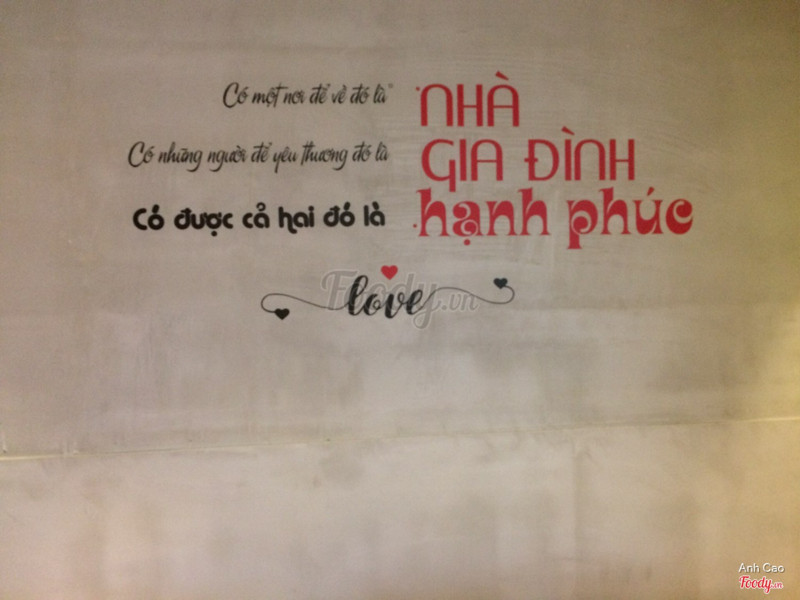 Có một nơi để về đó là NHÀ
Có những người để yêu thương đó là GIA ĐÌNH
Có được cả hai đó là hạnh phúc
love
Foody.vn
Anh Cao
Foody.vn